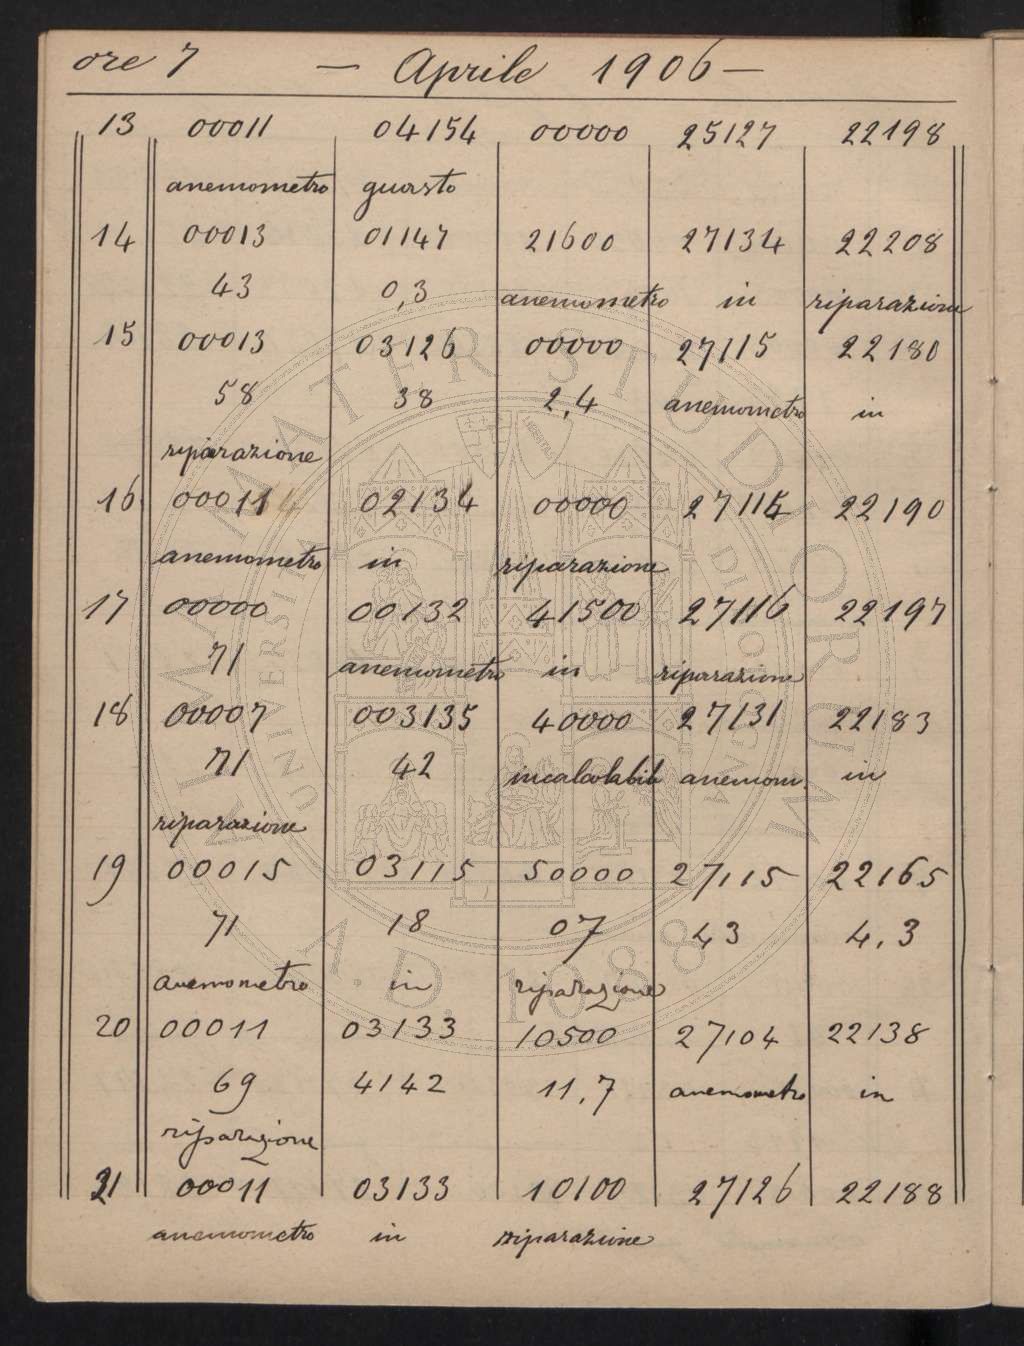 ore 7 — Aprile 1906 —
13 00011 04154 00000 25127 22198
anemometro guasto
14 00013 01147 21600 27134 22208
43 0,3 anemometro in riparazione
15 00013 03126 00000 27115 22180
58 38 2,4 anemometro in
riparazione
16 00011 02134 00000 27115 22190
anemometro in riparazione
17 00000 00132 41500 27116 22197
71 anemometro in riparazione
18 00007 003135 40000 27131 22183
71 42 incalcolabile anemom. in
riparazione
19 00015 03115 50000 27115 22165
71 18 07 43 4,3
anemometro in riparazione
20 00011 03133 10500 27104 22138
69 4142 11,7 anemometro in
riparazione
21 00011 03133 10100 27126 22188
anemometro in riparazione
ALMA MATER STUDIORUM
A.D. 1088